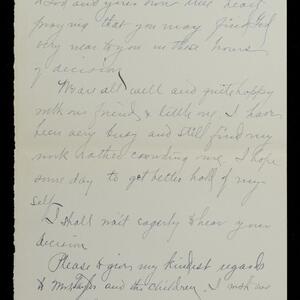 to God and your own true heart
praying that you may find God
very near to you in these hours
of decision.
We are all well and quite happy
with our friends & little ones. I have
been very busy and still find my
work rather crowding me. I hope
some day to get better hold of my
self.
I shall wait eagerly to hear your
decision
Please to give my kindest regards
to Mrs. Taylor and the children. I wish we